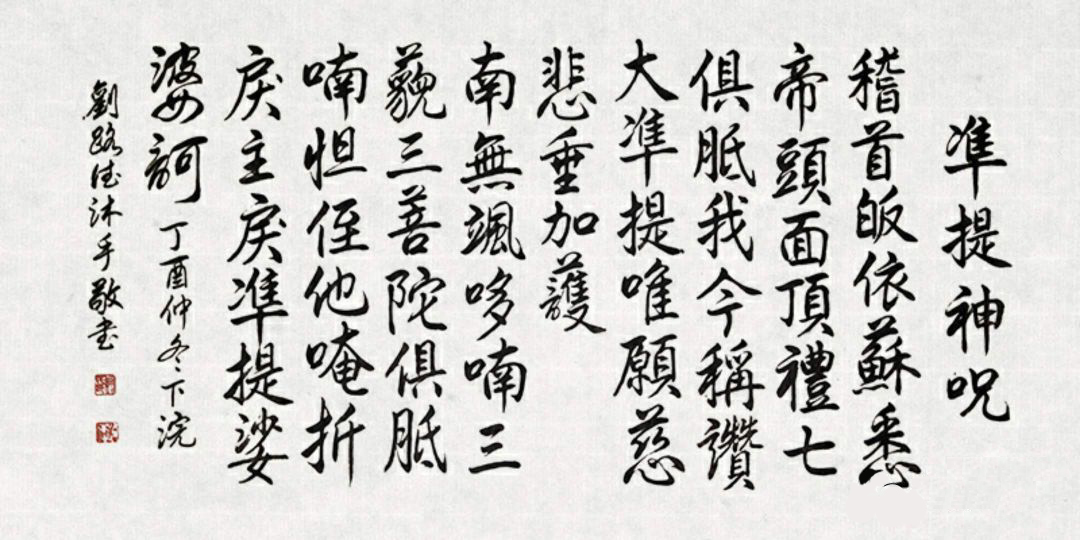 準提神呪
稽首皈依蘇悉
帝頭面頂禮七
俱胝我今稱讚
大準提唯願慈
悲垂加護
南無颯哆喃三
藐三菩陀俱胝
喃怛侄他唵折
戾主戾準提娑
婆訶
丁酉仲冬下浣
劉路德沐手敬書